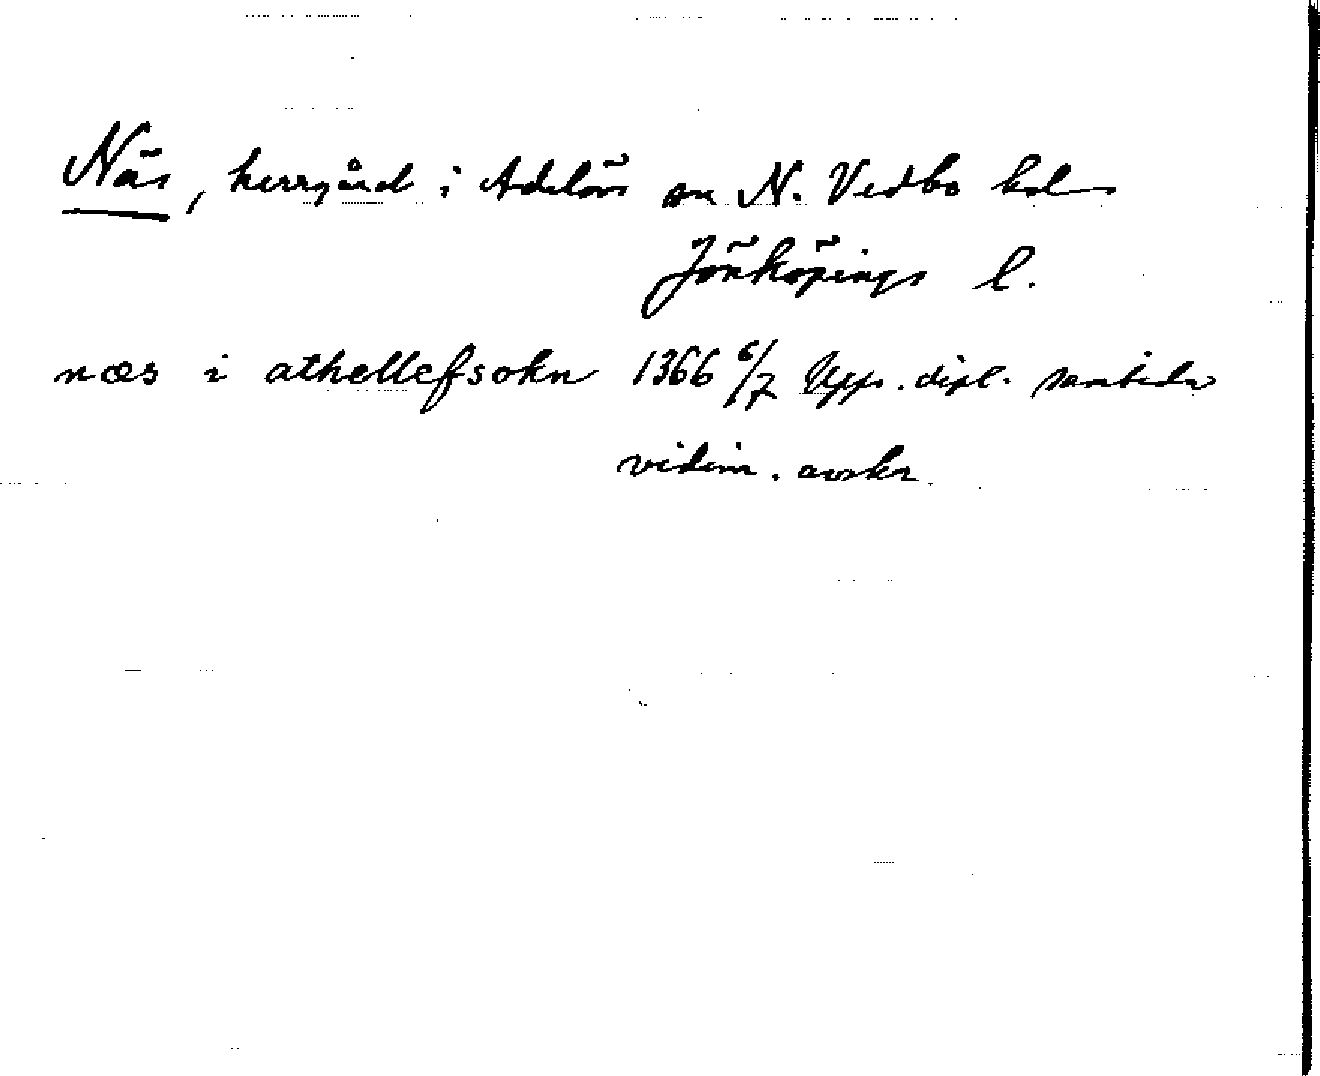 Näs, herrgård i Adelövs sn N. Vedbo hd
Jönköpings l.
næs i athellefsokn 1366 6/7 Upps. dipl. samtida
vidim. avskr.